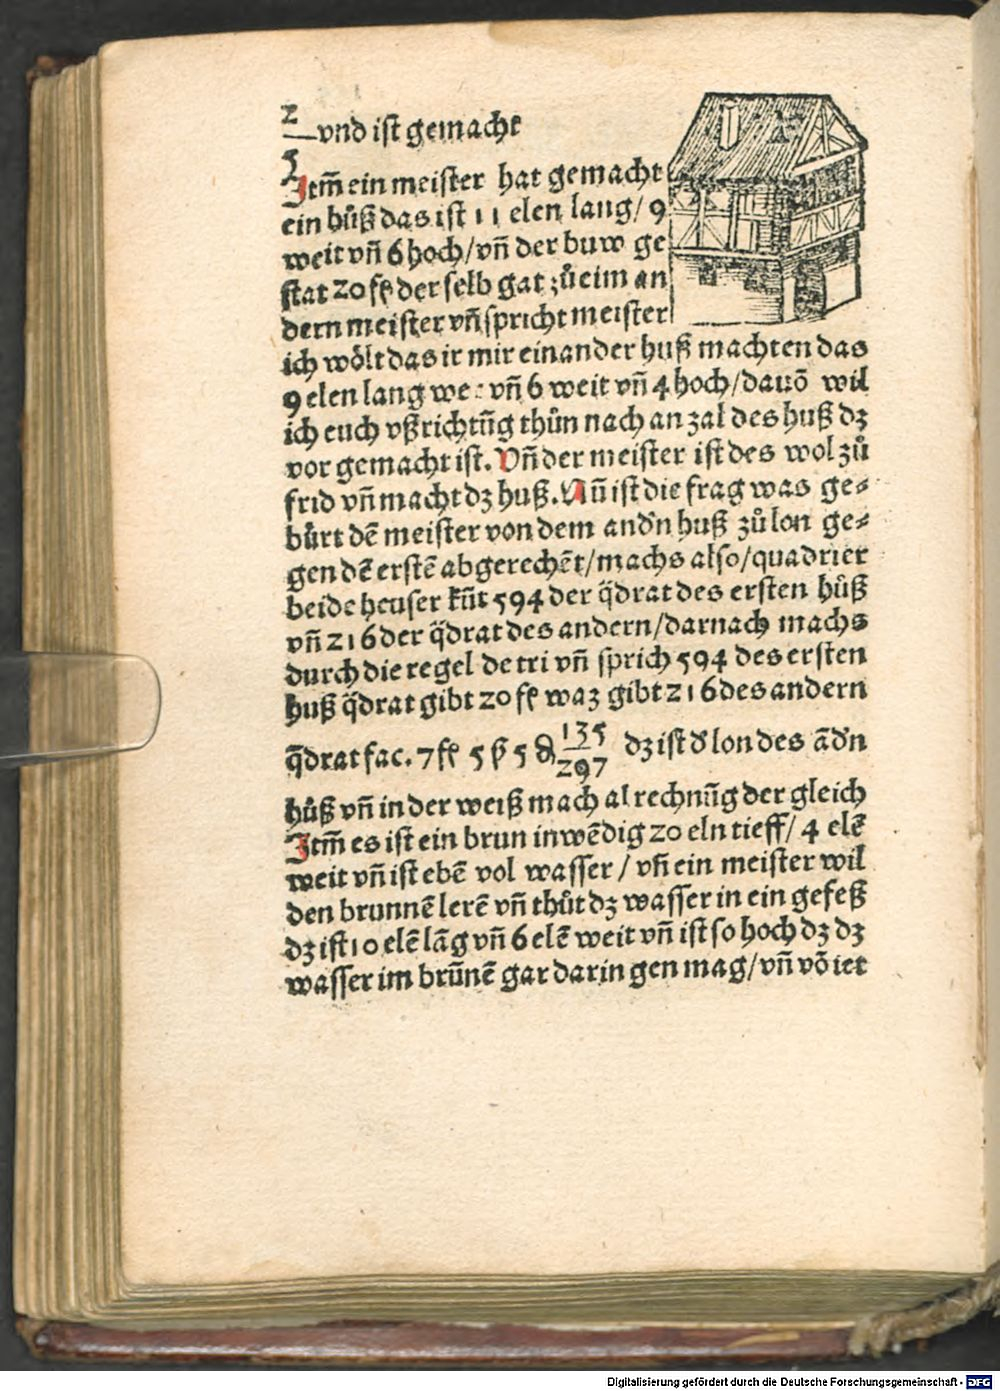 2
— vnd ist gemacht
5
Jtm̄ ein meister hat gemacht
ein hůß das ist 11 elen lang/ 9
weit vn̄ 6 hoch/ vn̄ der buw ge
stat 20 fl̕ der selb gat zů eim an
dern meister vn̄ spricht meister
ich wölt das ir mir ein ander huß machten das
9 elen lang we vn̄ 6 weit vn̄ 4 hoch/ dauō wil
ich euch vßrichtūg thůn nach an zal des huß dz
vor gemacht ist. Vn̄ der meister ist des wol zů
frid vn̄ macht dz huß. Nū ist die frag was ge⸗
bůrt dē meister von dem andn̄ huß zů lon ge⸗
gen dē erstē abgerechēt/ machs also/ quadrier
beide heuser kūt 594 der q̄drat des ersten hůß
vn̄ 216 der q̄drat des andern/ darnach machs
durch die regel de tri vn̄ sprich 594 des ersten
huß q̄drat gibt 20 fl̕ waz gibt 216 des andern
q̄drat fac. 7 fl̕ 5 ß 5 ₰ 135/297 dz ist d̕ lon des ād̕n
hůß vn̄ in der weiß mach al rechnūg der gleich
Jtm̄ es ist ein brun inwēdig 20 eln tieff/ 4 elē
weit vn̄ ist ebē vol wasser / vn̄ ein meister wil
den brunnē lerē vn̄ thůt dz wasser in ein gefeß
dz ist 10 elē lāg vn̄ 6 elē weit vn̄ ist so hoch dz dz
wasser im brūnē gar darin gen mag/ vn̄ vō iet
Digitalisierung gefördert durch die Deutsche Forschungsgemeinschaft - DFG